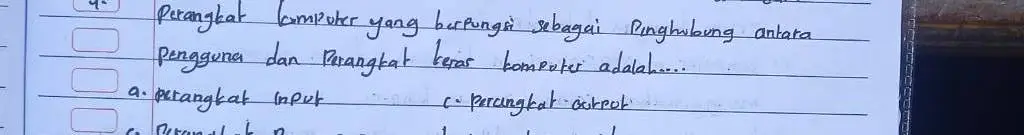 Perangkat komputer yang berfungsi sebagai Penghubung antara
Pengguna dan Perangkat keras komputer adalah....
a. perangkat input c. perangkat output